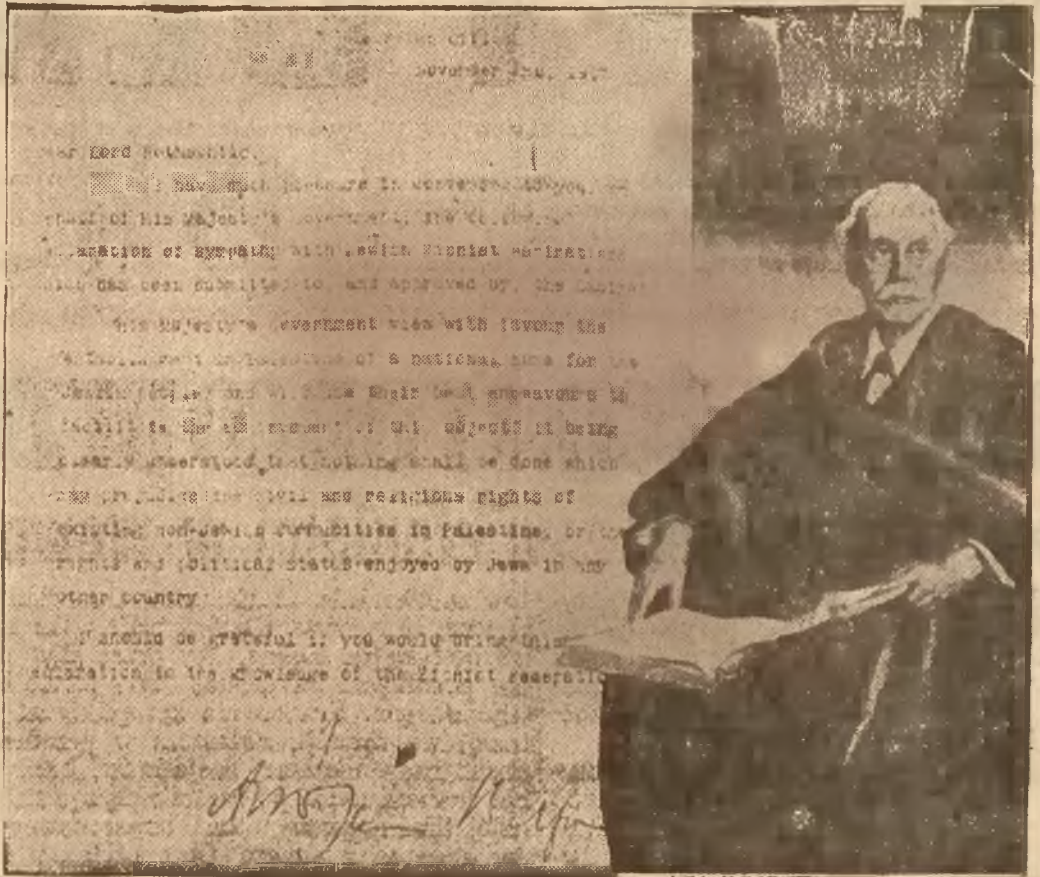 November 2nd, 1917
Lord Rothschild,
have much pleasure in conveying to you, on
of His Majesty's Government, the following
of sympathy with Jewish Zionist aspirations
has been submitted to, and approved by, the Cabinet
His Majesty's Government view with favour the
in Palestine of a national home for the
Jewish people, and will use their best endeavours to
facilitate the achievement of this object, it being
clearly understood that nothing shall be done which
may prejudice the civil and religious rights of
existing non-Jewish communities in Palestine, or the
rights and political status enjoyed by Jews in any
other country
I should be grateful if you would bring this
to the knowledge of the Zionist Federation
Arthur